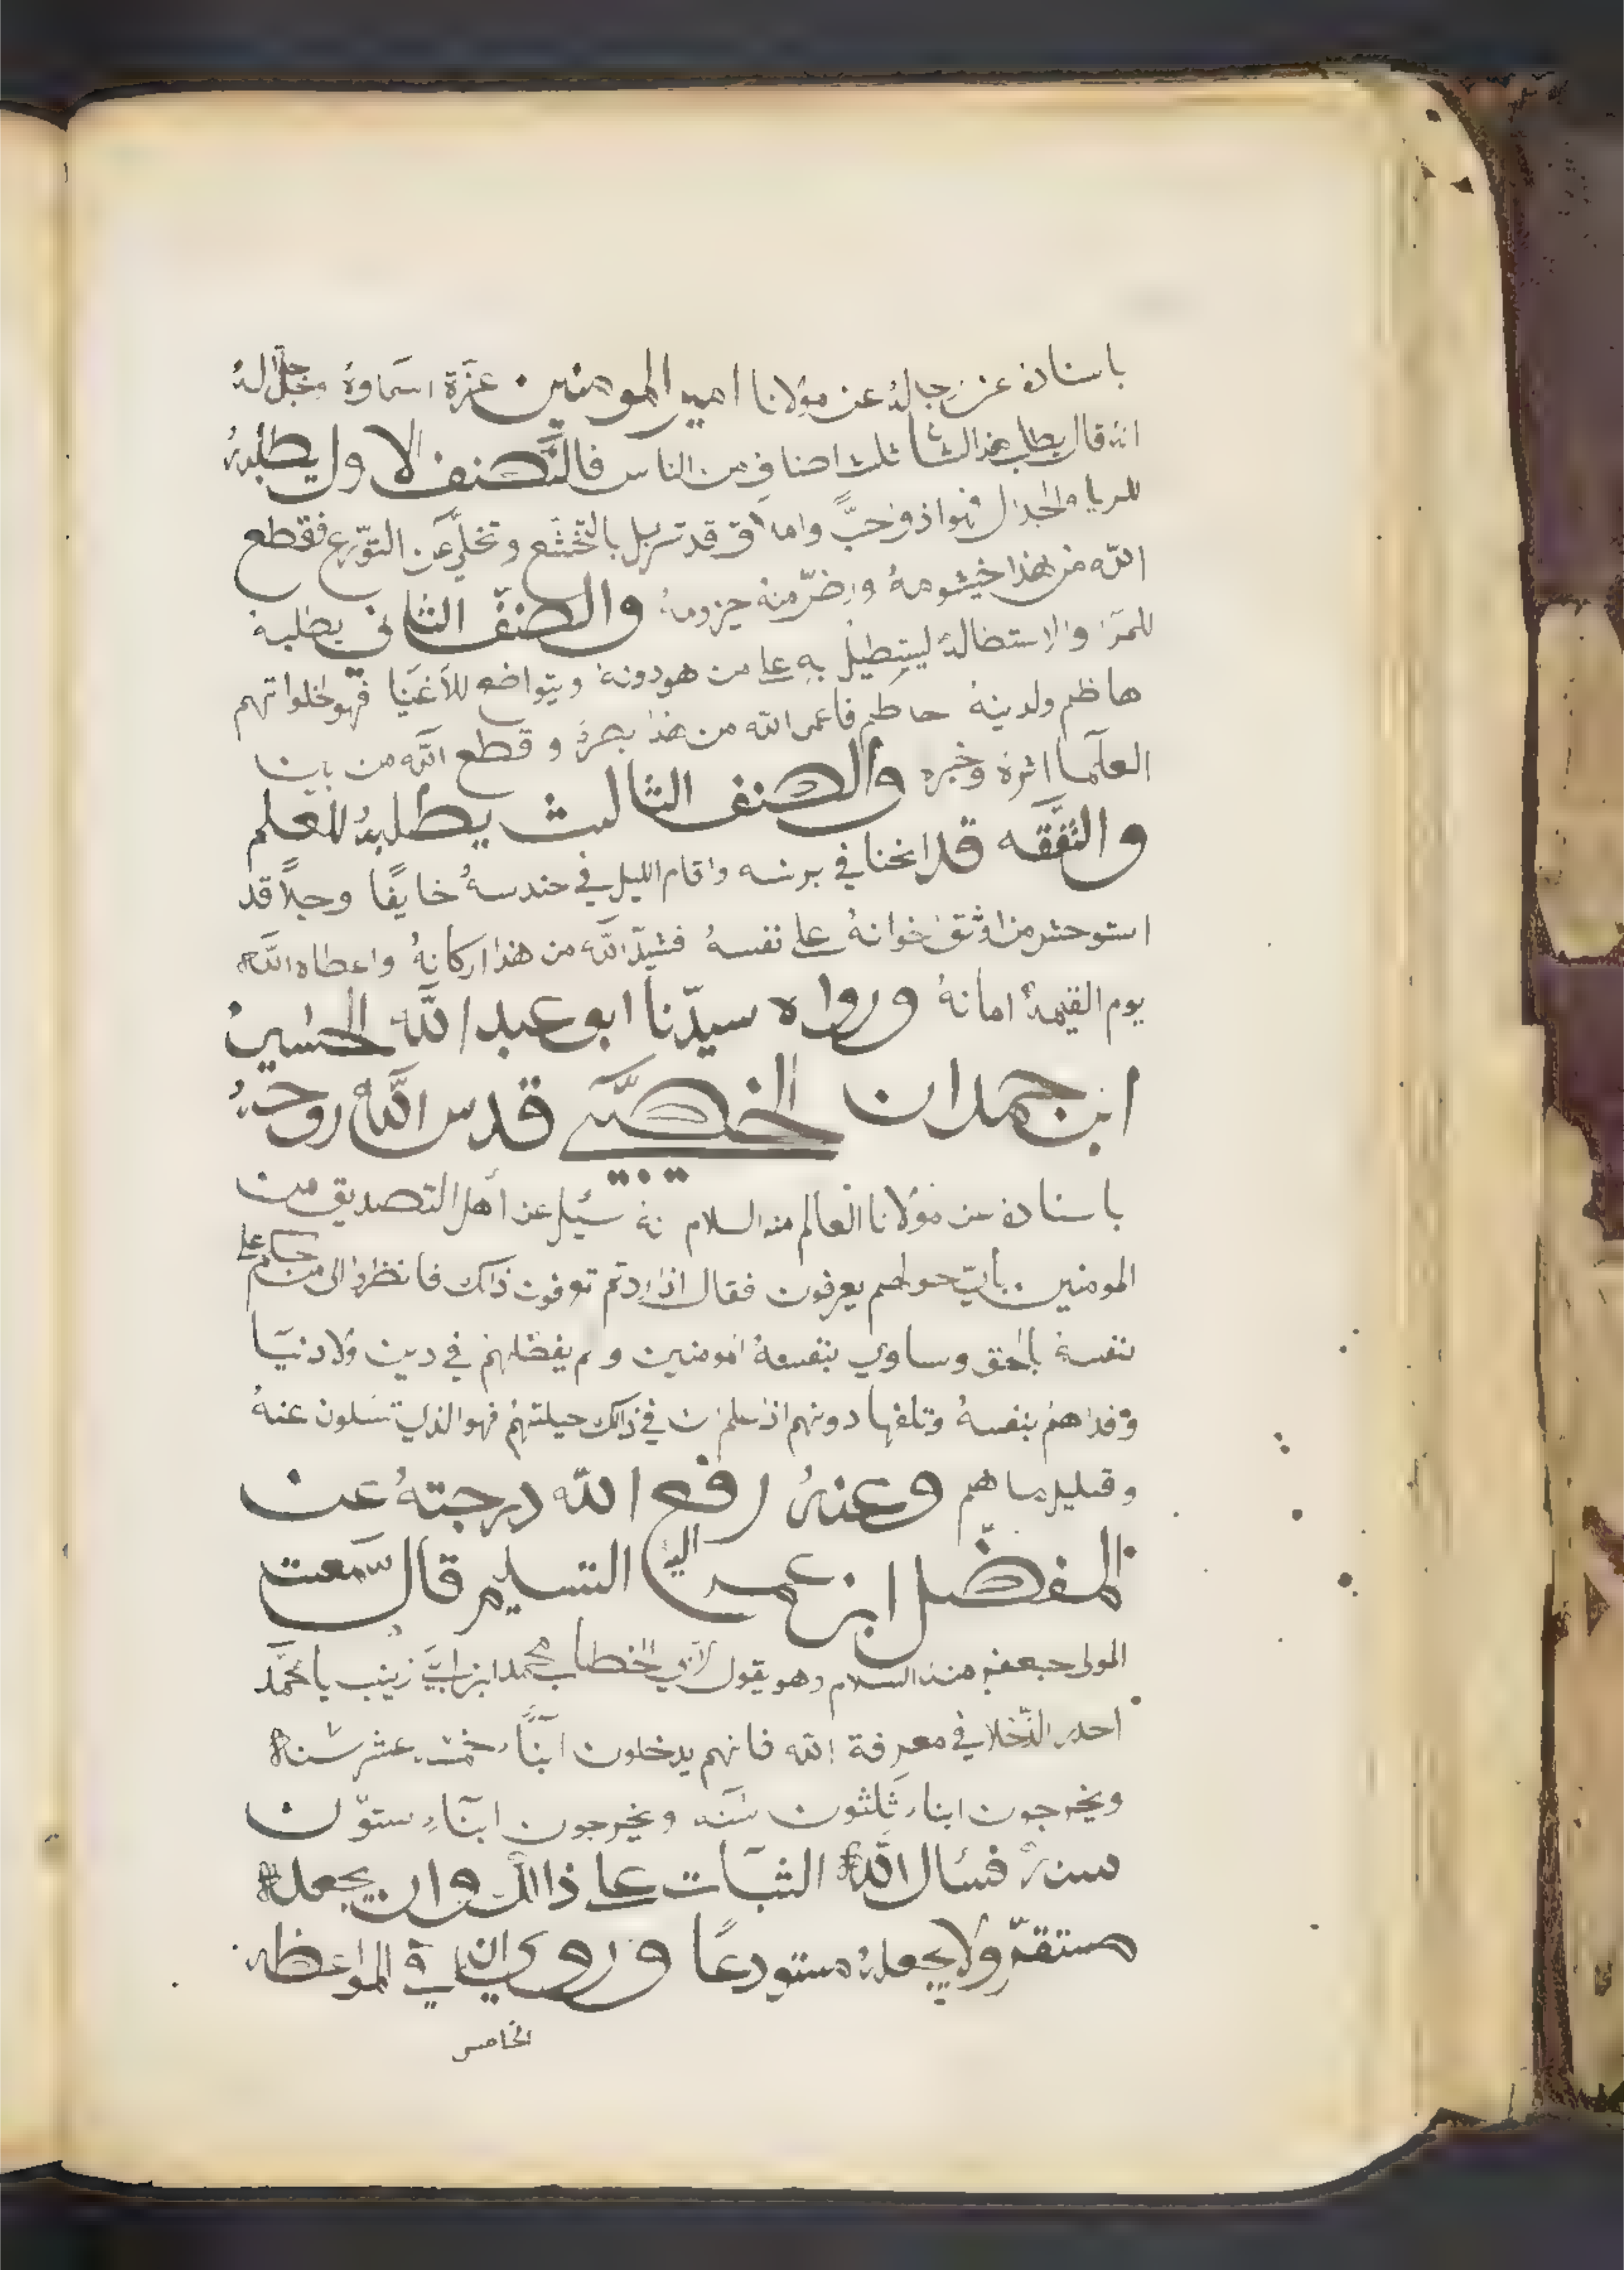 باسناده عن رجاله عن مولانا امير المومنين عزة اسماوه وجل جلاله
انه قال يطلب هذا الشا ثلث اصنافٍ من الناس فالصنف الاول يطلبهُ
للريا والجدال فهو اذو خبٍّ وملاق قد تسربل بالتخشع وتخلّى عن التوّرع فقطع
اللّه من هذا خيشومهُ ورضّ منه حيزومهُ والصنفّ الثاني يطلبهُ
للمرا والاستطالة ليستطيل به على من هو دونهُ ويتواضع للأغنيا فهو لحلواتهم
هاظم ولدينهُ حاطم فاعمى الله من هذا بصرهُ وقطع اللّه من بين
العلّما اثرهُ وخبره والصنف الثالث يطلبهُ للعلم
والتفّقه قد انحنا في برنسه واقام الليل في حندسهُ خايفًا وجلًا قد
استوحش من اوثق اخوانهُ على نفسهُ فشيدّ اللّه من هذا اركانهُ واعطاه اللّه
يوم القيمة امانهُ ورواه سيدّنا ابو عبد اللّه الحسين
ابن حمدان الخصيّبي قدس اللّه روحهُ
باسناده عن مولانا العالم منه السلام انهُ سُيل عن أهل التصديق من
المومنين بأيّ حولهم يعرفون فقال اذا اردتم تعرفون ذالك فانظروا الى من حكم على
نفسهُ بالحق وساوي بنفسهُ المومنين ولم يفضلهم في دين ولا دنيا
وفداهم بنفسهُ وتلفها دونهم اذ علم ان في ذالك حيلتهم فهو الذي تسلون عنهُ
وقليل ما هم وعنهُ رفع اللّه درجتهُ عن
المفضّل ابن عمر اليه التسليم قال سمعت
المولى جعفر منه السلام وهو يقول لابي الخطاب محمد ابن ابي زينب يا محمّد
احذر الدّخلا في معرفة اللّه فانهم يدخلون ابنّاء خمسة عشر سنة
ويخرجون ابناء ثلثون سنه ويخرجون ابنّاء ستوّن
سنه فسال اللّه الثبات على ذالك وان يجعله
مستقرّ ولا يجعلهُ مستودعًا وروي ان في المواعظ
الخامس